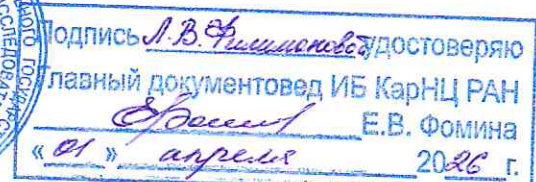 Подпись Л.В. Филимоновой удостоверяю
Главный документовед ИБ КарНЦ РАН
Е.В. Фомина
« 01 » апреля 2026 г.